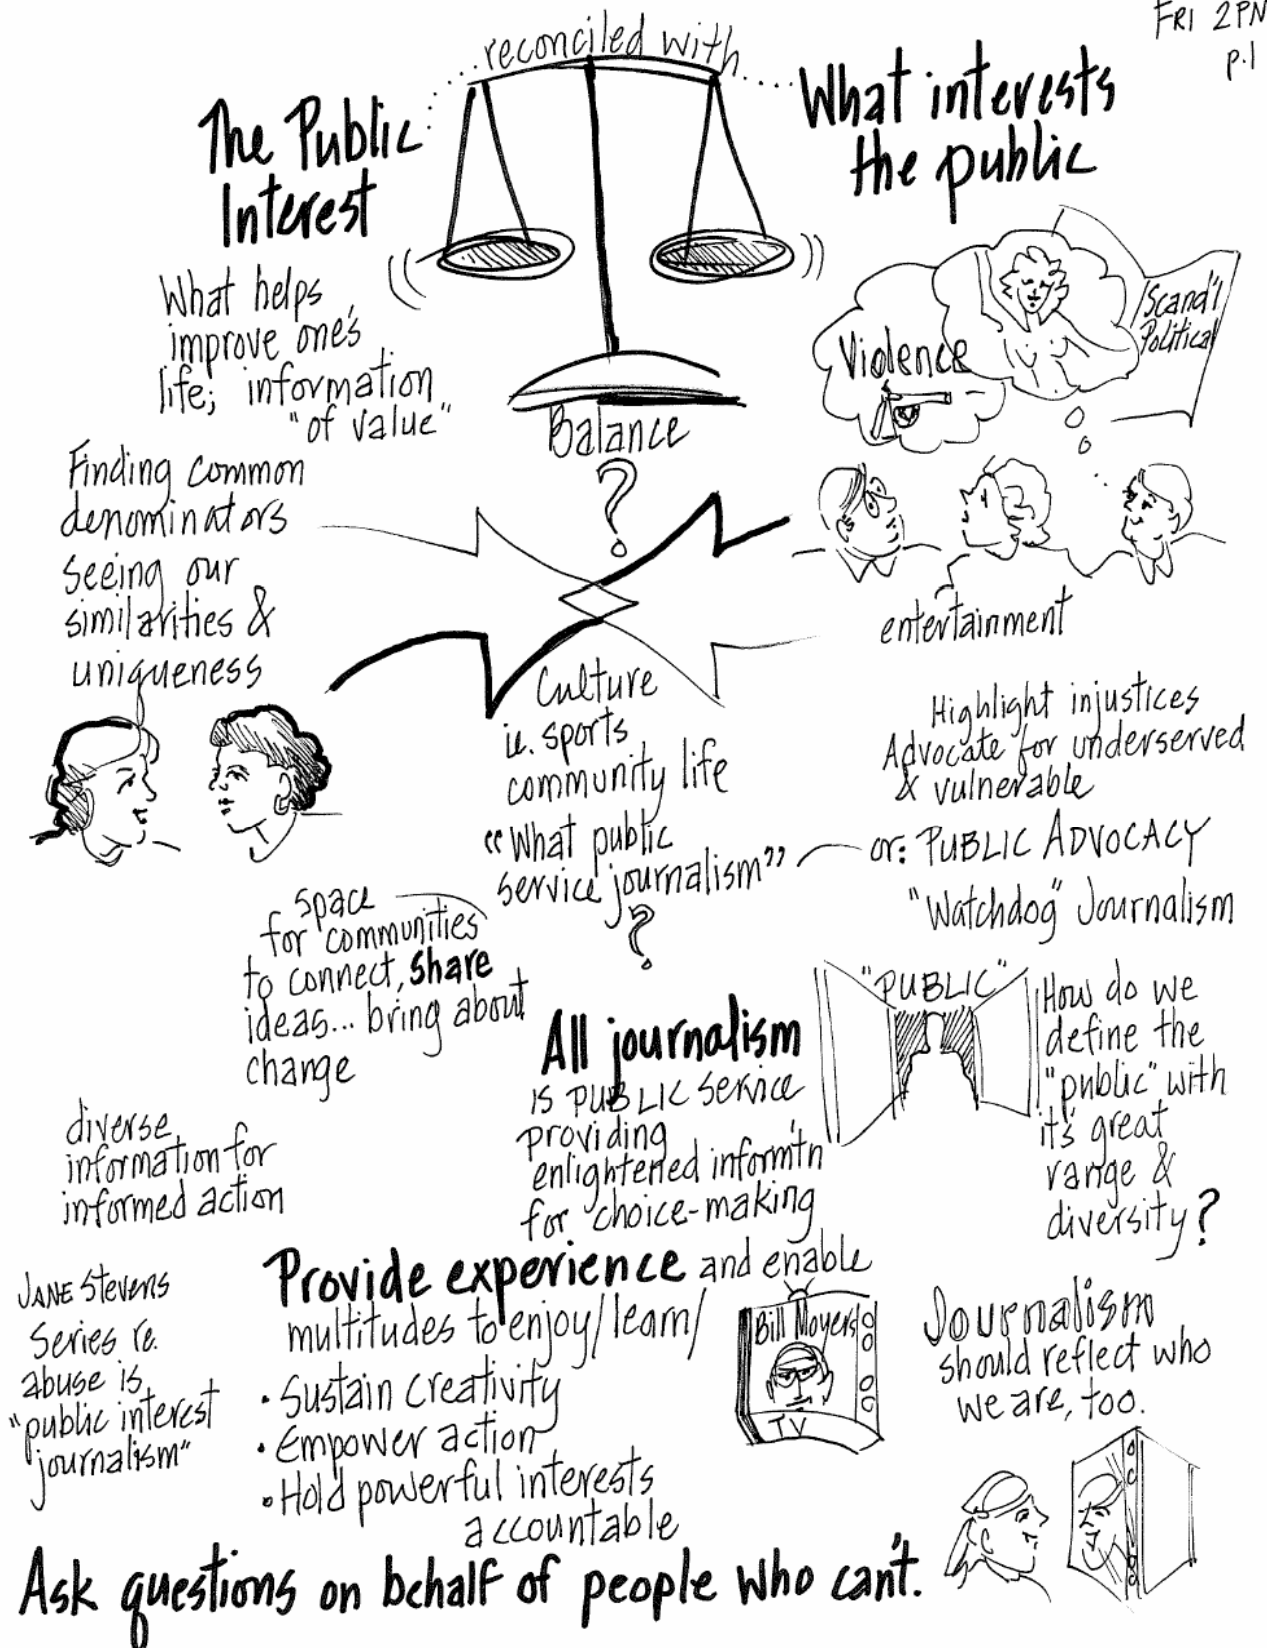 FRI 2PM
p.1
reconciled with
The Public
Interest
What interests
the public
What helps
improve one's
life; information
"of value"
Balance
?
Violence
Scand'l
Political
Finding common
denominators
seeing our
similarities &
uniqueness
entertainment
Culture
ie. sports
community life
"What public
service journalism"
?
Highlight injustices
Advocate for underserved
& vulnerable
or: PUBLIC ADVOCACY
"Watchdog" Journalism
space
for communities
to connect, share
ideas... bring about
change
"PUBLIC"
How do we
define the
"public" with
it's great
range &
diversity?
All journalism
is PUBLIC service
providing
enlightened informt'n
for choice-making
diverse
information for
informed action
JANE Stevens
Series re.
abuse is
"public interest
journalism"
Provide experience and enable
multitudes to enjoy/learn/
• Sustain creativity
• Empower action
• Hold powerful interests
accountable
Bill Moyers
TV
Journalism
should reflect who
we are, too.
Ask questions on behalf of people who can't.